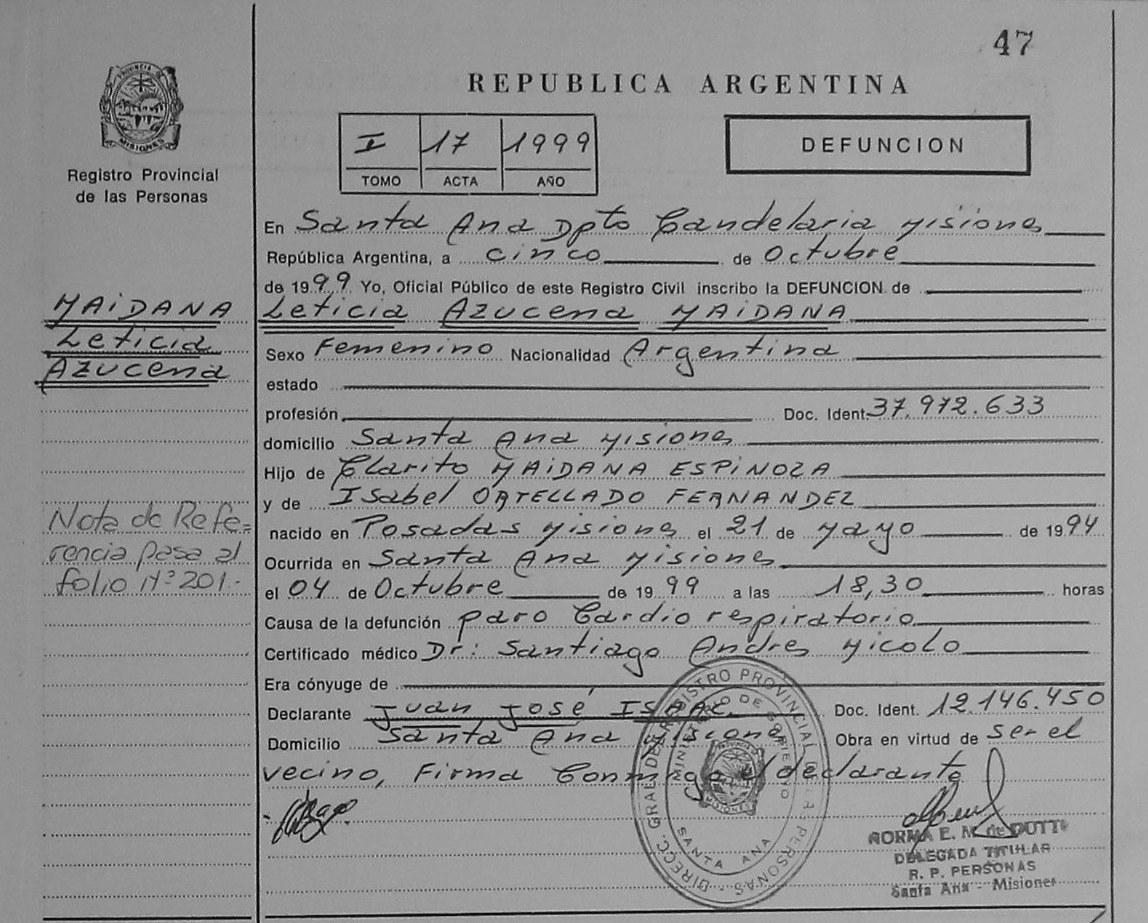 47
REPUBLICA ARGENTINA
PROVINCIA DE
MISIONES
Registro Provincial
de las Personas
I 17 1999
TOMO ACTA AÑO
DEFUNCION
En Santa Ana Dpto Candelaria Misiones
República Argentina, a cinco de Octubre
de 1999 Yo, Oficial Público de este Registro Civil inscribo la DEFUNCION de
MAIDANA
Leticia
Azucena
Leticia Azucena MAIDANA
Sexo Femenino Nacionalidad Argentina
estado
profesión Doc. Ident. 37.972.633
domicilio Santa Ana Misiones
Hijo de Clarito MAIDANA ESPINOZA
y de Isabel ORTELLADO FERNANDEZ
Nota de Refe=
rencia pasa al
folio Nº 201.-
nacido en Posadas Misiones el 21 de Mayo de 1994
Ocurrida en Santa Ana Misiones
el 04 de Octubre de 1999 a las 18,30 horas
Causa de la defunción paro Cardio respiratorio
Certificado médico Dr: Santiago Andres Micolo
Era cónyuge de
Declarante Juan José Doc. Ident. 12.146.450
Domicilio Santa Ana Misiones Obra en virtud de ser el
vecino, Firma Conmigo el declarante
DIRECC. GRAL. DEL REGISTRO PROVINCIAL DE LAS PERSONAS
MINISTERIO DE GOBIERNO
MISIONES
SANTA ANA
NORMA E. M. de DUTTO
DELEGADA TITULAR
R. P. PERSONAS
Santa Ana - Misiones